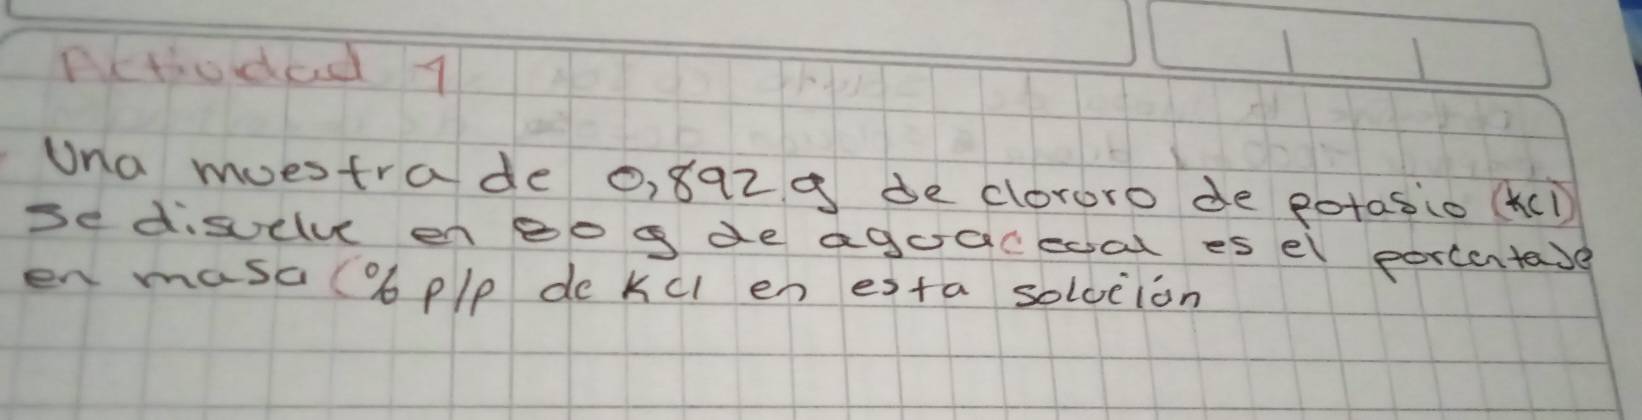 Actividad 1
Una muestra de 0,892 g de cloruro de potasio (KCl)
se disuelve en 80 g de agua cual es el porcentaje
en masa (% p/p de KCl en esta solución